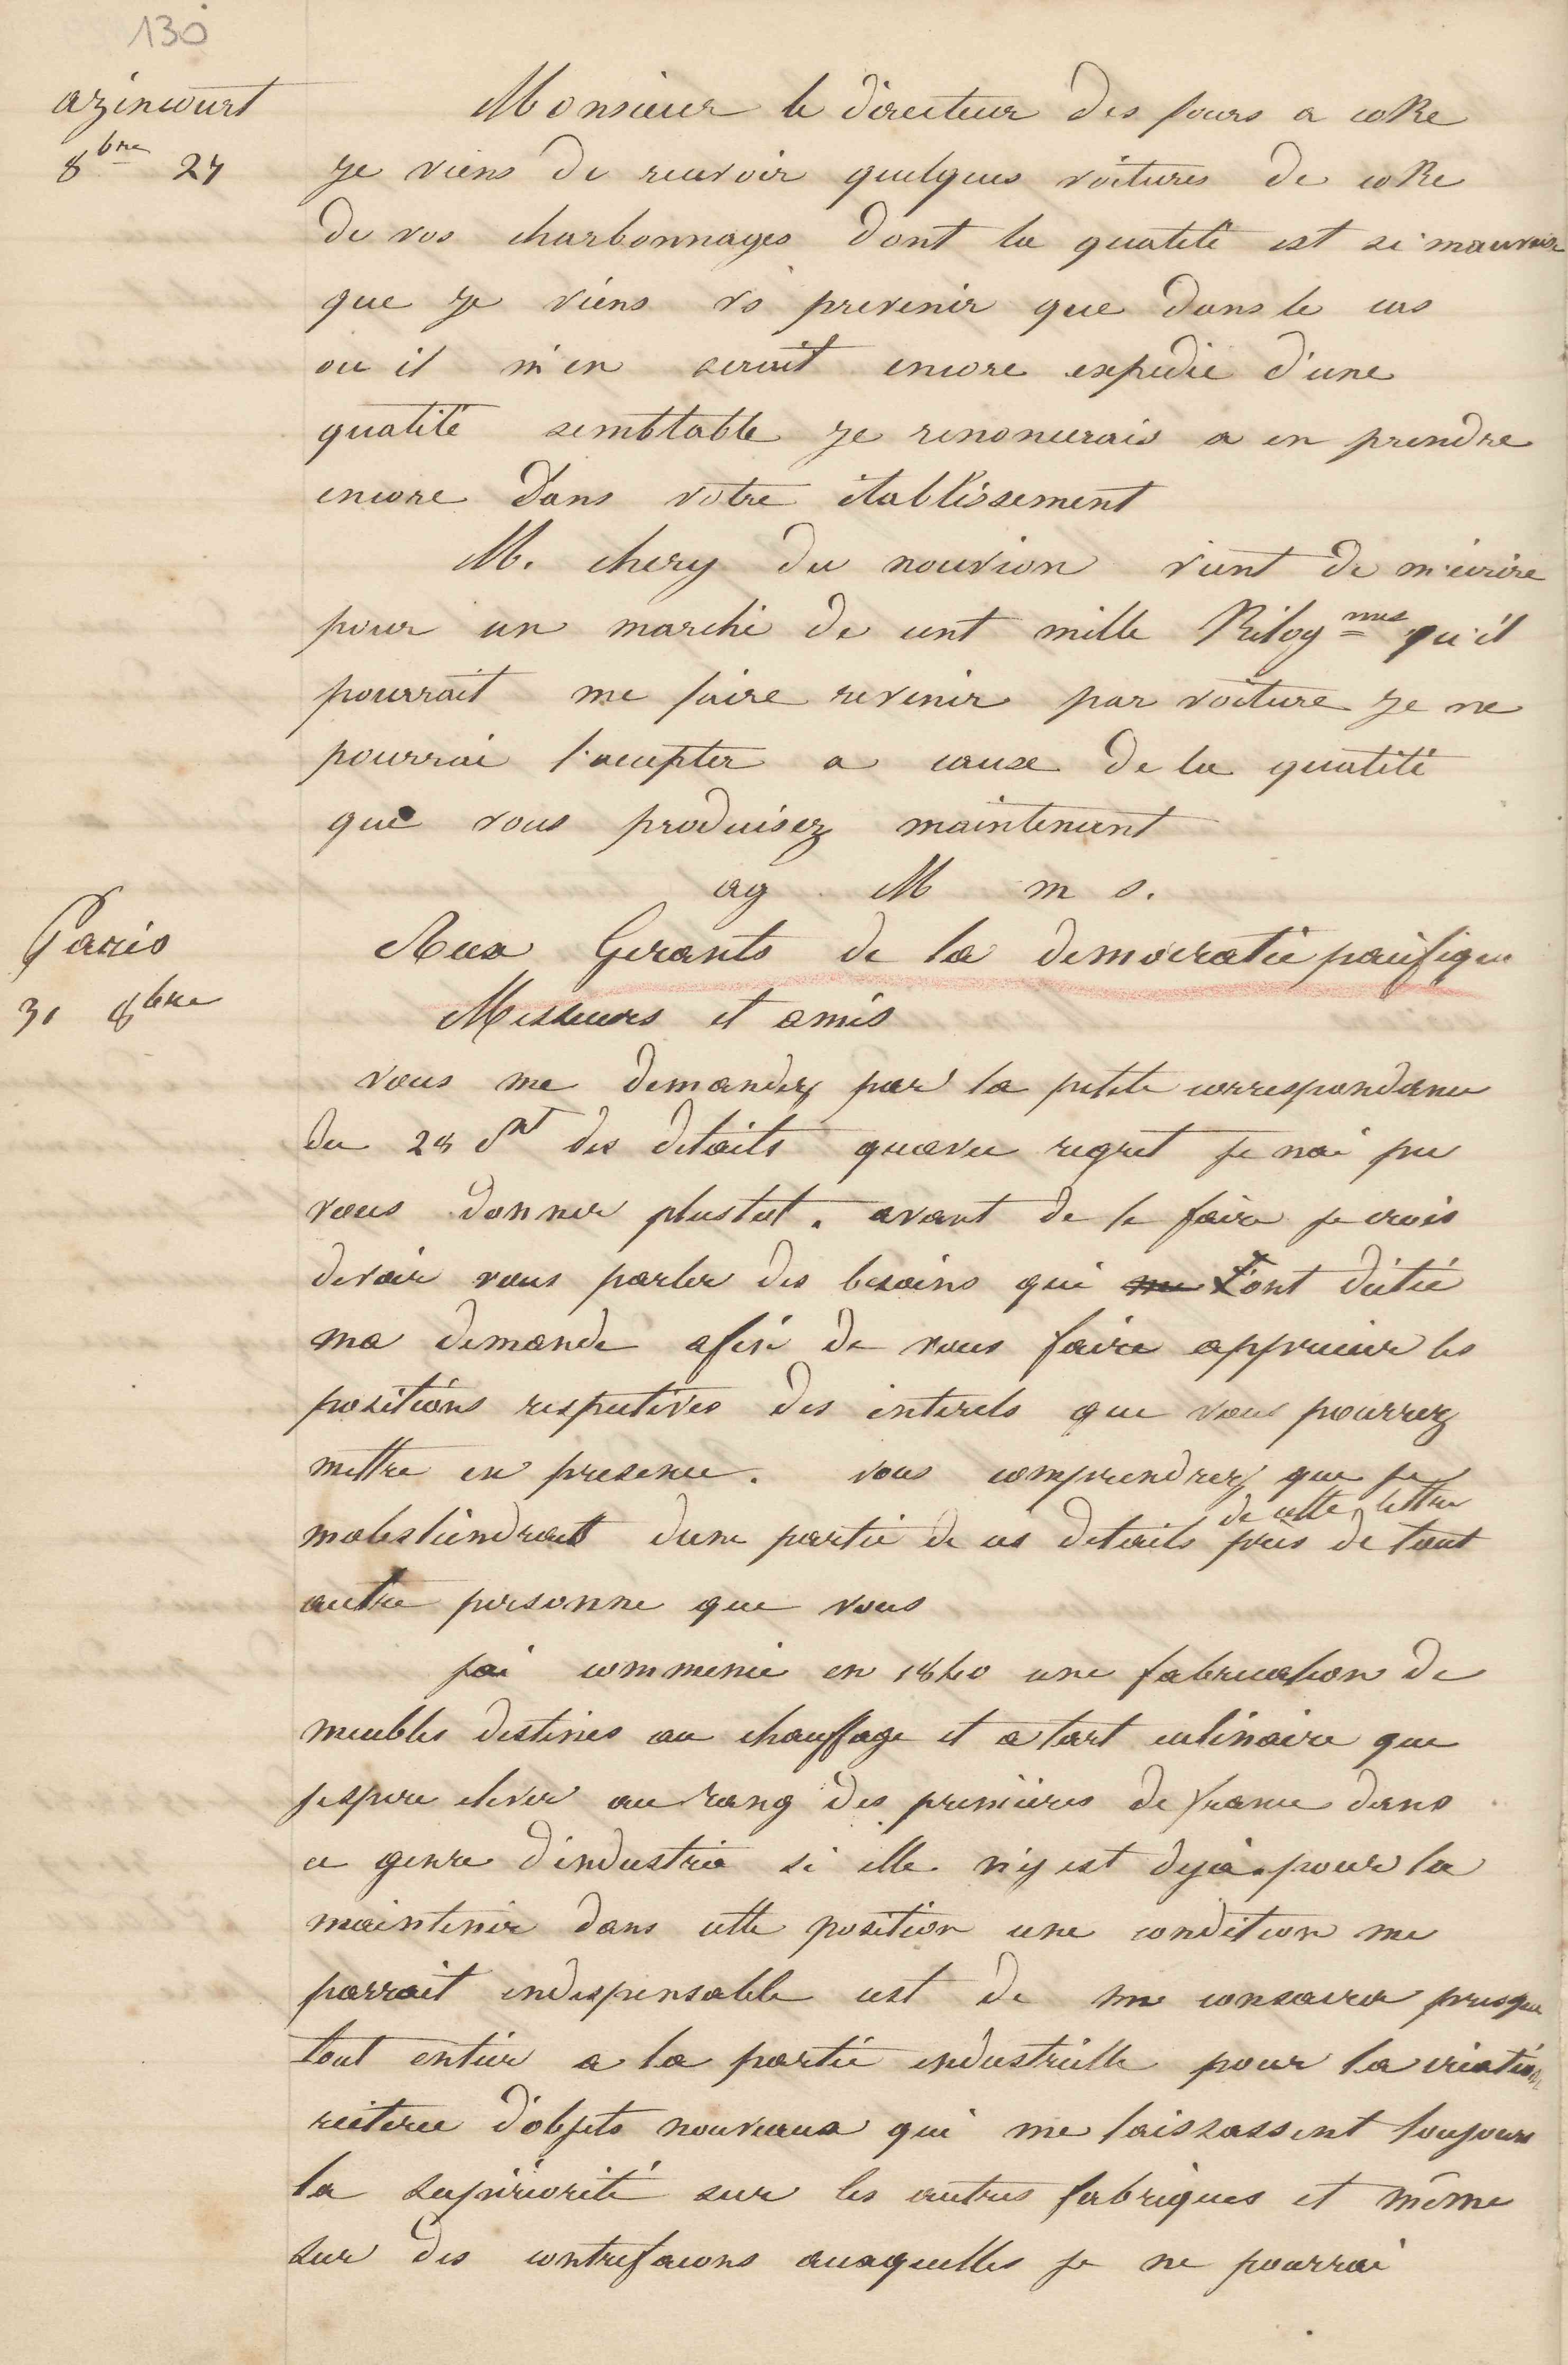 130
azincourt
8bre 27
Monsieur le directeur des fours a coke
je viens de recevoir quelques voitures de coke
de vos charbonnages dont la qualité est si mauvaise
que je viens vs prevenir que dans le cas
ou il m'en serait encore expedié d'une
qualité semblable je renoncerais a en prendre
encore dans votre établissement
M. chery du nouvion vient de m'écrire
pour un marché de cent mille Kilogmes qu'il
pourrait me faire revenir par voiture je ne
pourrai l'accepter a cause de la qualité
que vous produisez maintenant
ag M m s.
Paris
31 8bre
Aux Gerants de la democratie pacifique
Messieurs et amis
vous me demandez par la petite correspondance
du 28 ct des details quavec regret je nai pu
vous donner plustot. avant de le faire je crois
devoir vous parler des besoins qui me l'ont dictée
ma demande afin de vous faire apprecier les
positions respectives des interets que vous pourrez
mettre en presence. vous comprendrez que je
mabstiendrait dune partie de ces details de cette lettre près de tout
autre personne que vous
jai commencé en 1840 une fabrication de
meubles destinés au chauffage et a lart culinaire que
jespere elever au rang des premieres de france dans
ce genre d'industrie si elle n'y est deja. pour la
maintenir dans cette position une condition me
parrait indispensable cest de me consacrer presque
tout entier a la partie industrielle pour la création
reiteree d'objets nouveaux qui me laissassent toujours
la supériorité sur les autres fabriques et même
sur des contrefacons auxquelles je ne pourrai